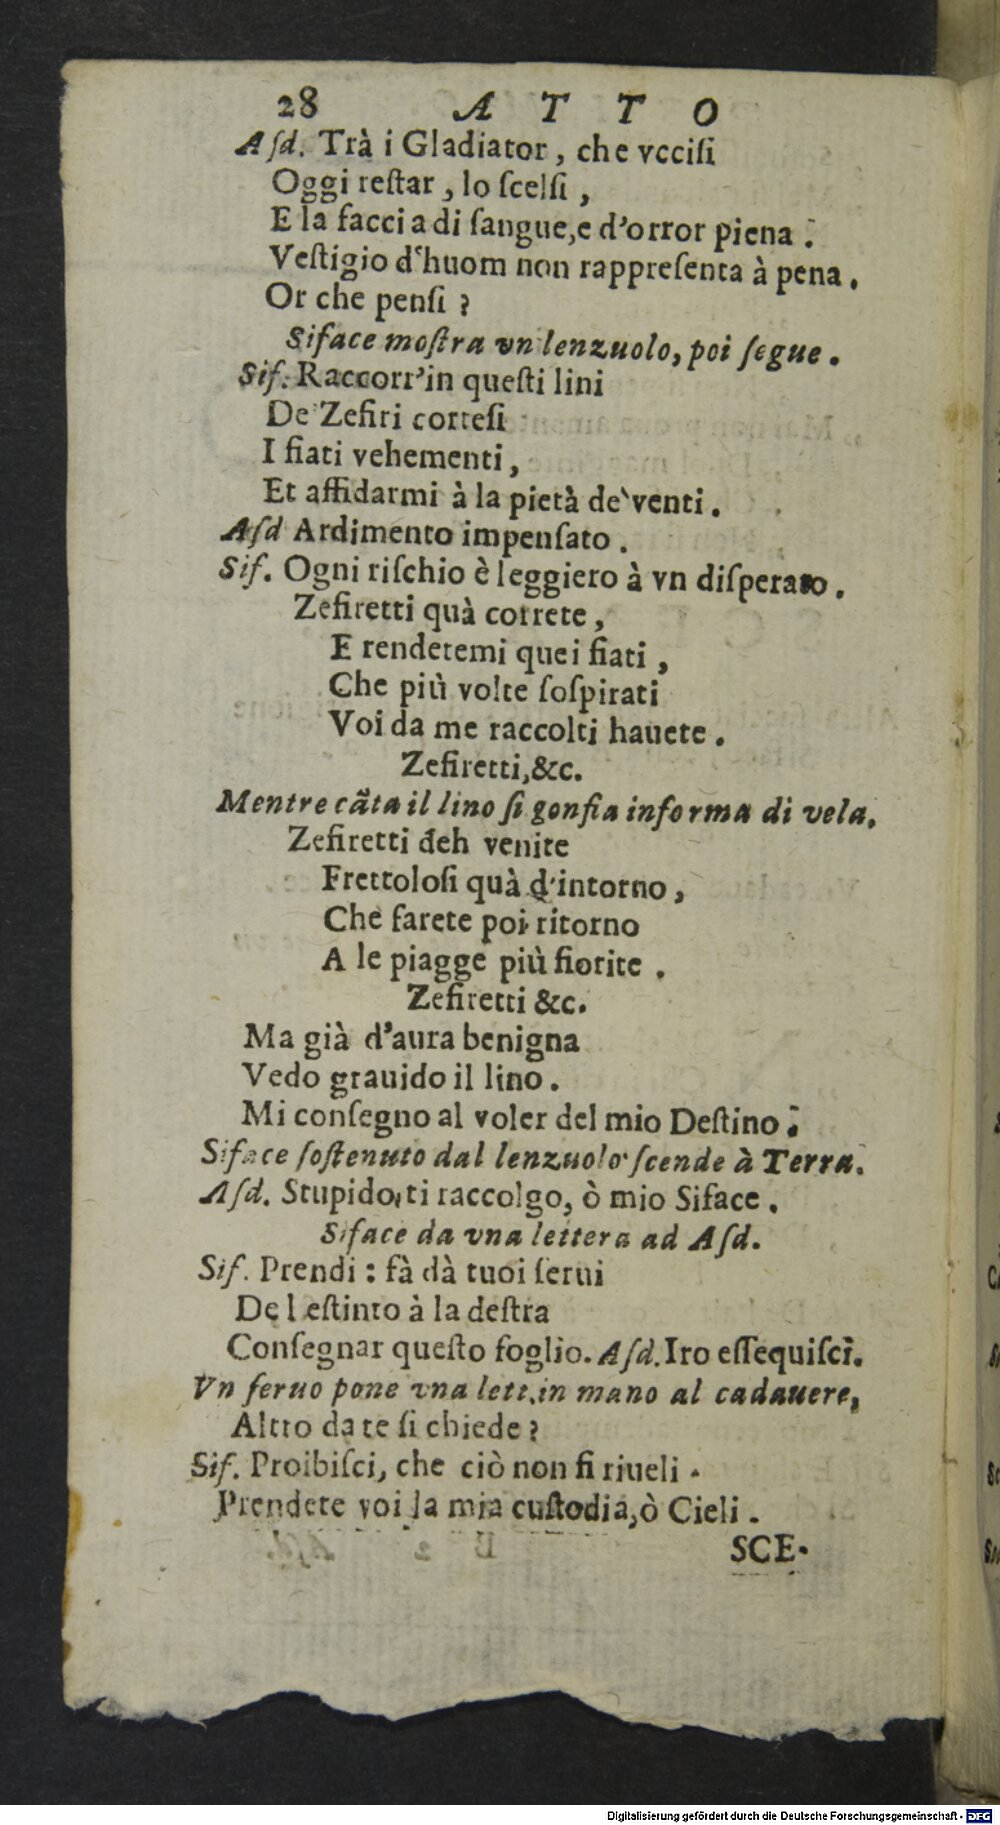 28 ATTO
Aſd. Trà i Gladiator, che vcciſi
Oggi reſtar, lo ſcelſi,
E la faccia di ſangue, e d'orror piena.
Veſtigio d'huom non rappreſenta à pena.
Or che penſi?
Siface moſtra vn lenzuolo, poi ſegue.
Sif. Raccorr'in queſti lini
De Zefiri corteſi
I fiati vehementi,
Et affidarmi à la pietà de' venti.
Aſd Ardimento impenſato.
Sif. Ogni riſchio è leggiero à vn diſperato.
Zefiretti quà correte,
E rendetemi quei fiati,
Che più volte ſoſpirati
Voi da me raccolti hauete.
Zefiretti, &c.
Mentre cãta il lino ſi gonfia in forma di vela.
Zefiretti deh venite
Frettoloſi quà d'intorno,
Che farete poi ritorno
A le piagge più fiorite.
Zefiretti &c.
Ma già d'aura benigna
Vedo grauido il lino.
Mi conſegno al voler del mio Deſtino.
Siface ſoſtenuto dal lenzuolo ſcende à Terra.
Aſd. Stupido, ti raccolgo, ò mio Siface.
Siface da vna lettera ad Aſd.
Sif. Prendi: fà dà tuoi ſerui
Del eſtinto à la deſtra
Conſegnar queſto foglio. Aſd. Iro eſſequiſci.
Vn ſeruo pone vna lett. in mano al cadauere,
Altro da te ſi chiede?
Sif. Proibiſci, che ciò non ſi riueli.
Prendete voi la mia cuſtodia, ò Cieli.
SCE.
Digitalisierung gefördert durch die Deutsche Forschungsgemeinschaft - DFG